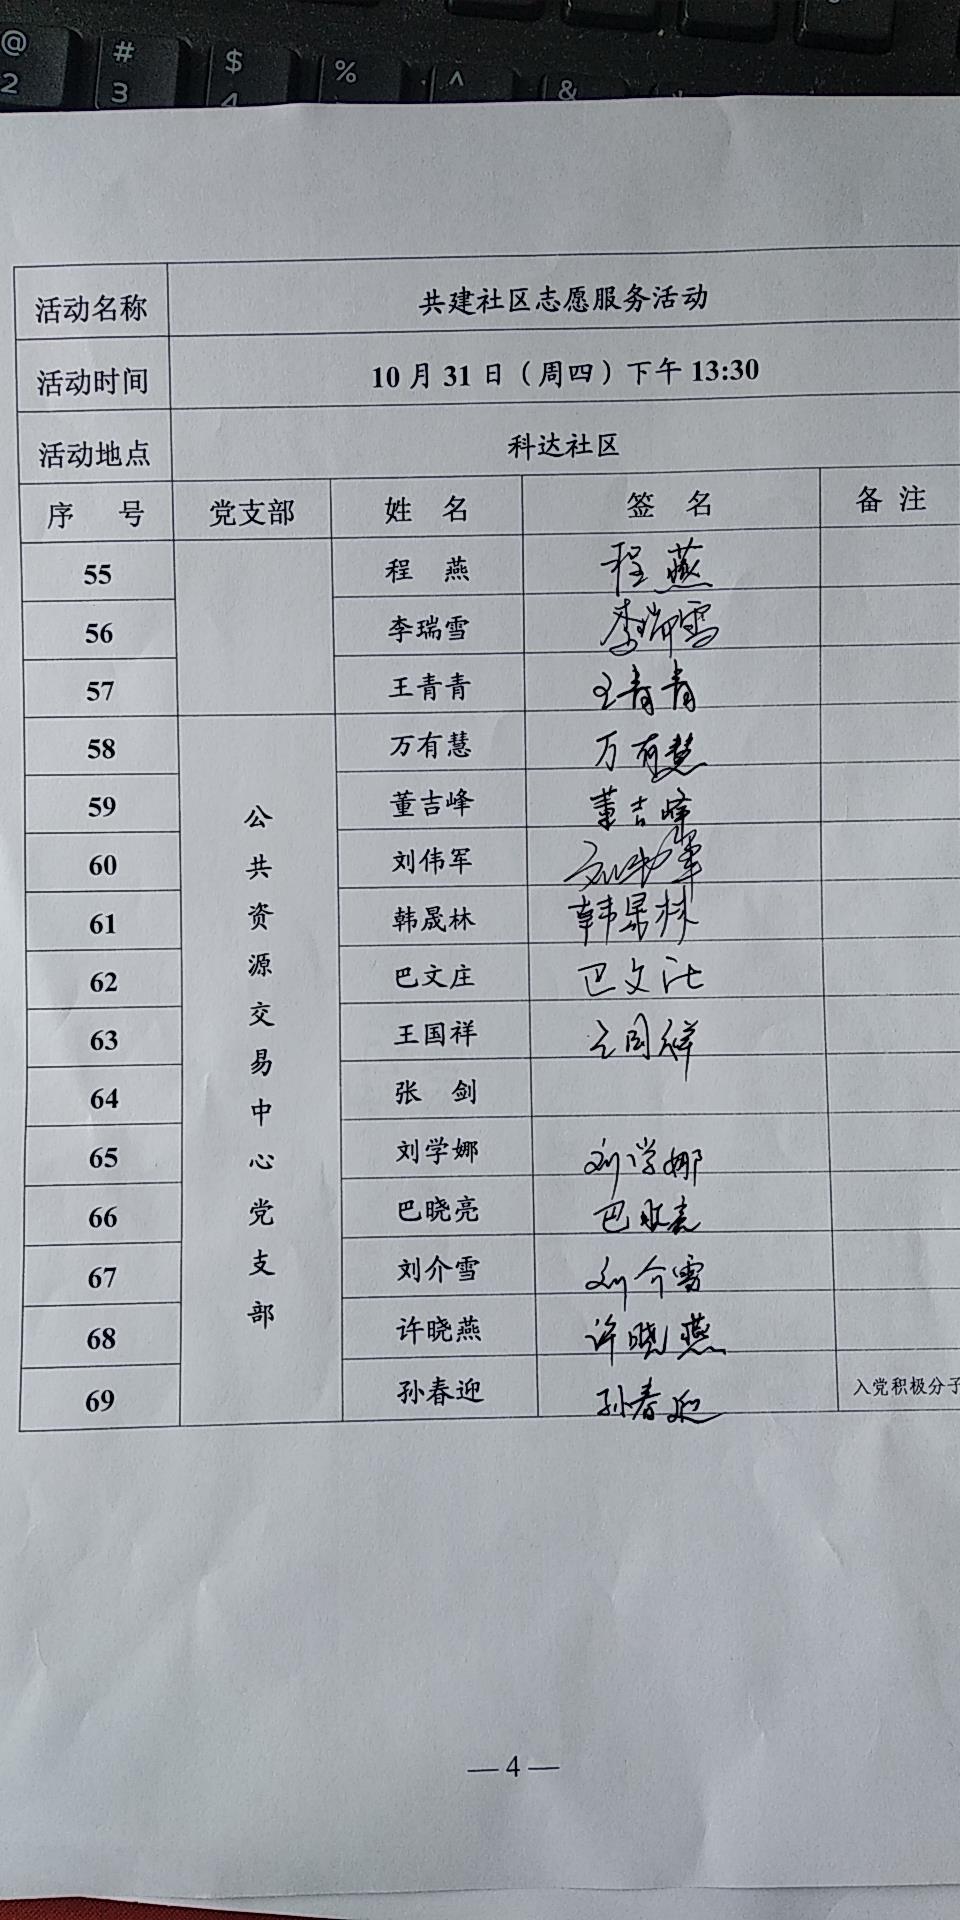 @ # $ % ^ &
2 3 4
活动名称 共建社区志愿服务活动
活动时间 10月31日（周四）下午13:30
活动地点 科达社区
序 号 党支部 姓 名 签 名 备 注
55 程 燕 程燕
56 李瑞雪 李瑞雪
57 王青青 王青青
公共资源交易中心党支部
58 万有慧 万有慧
59 董吉峰 董吉峰
60 刘伟军 刘伟军
61 韩晟林 韩晟林
62 巴文庄 巴文庄
63 王国祥 王国祥
64 张 剑
65 刘学娜 刘学娜
66 巴晓亮 巴晓亮
67 刘介雪 刘介雪
68 许晓燕 许晓燕
69 孙春迎 孙春迎 入党积极分子
— 4 —